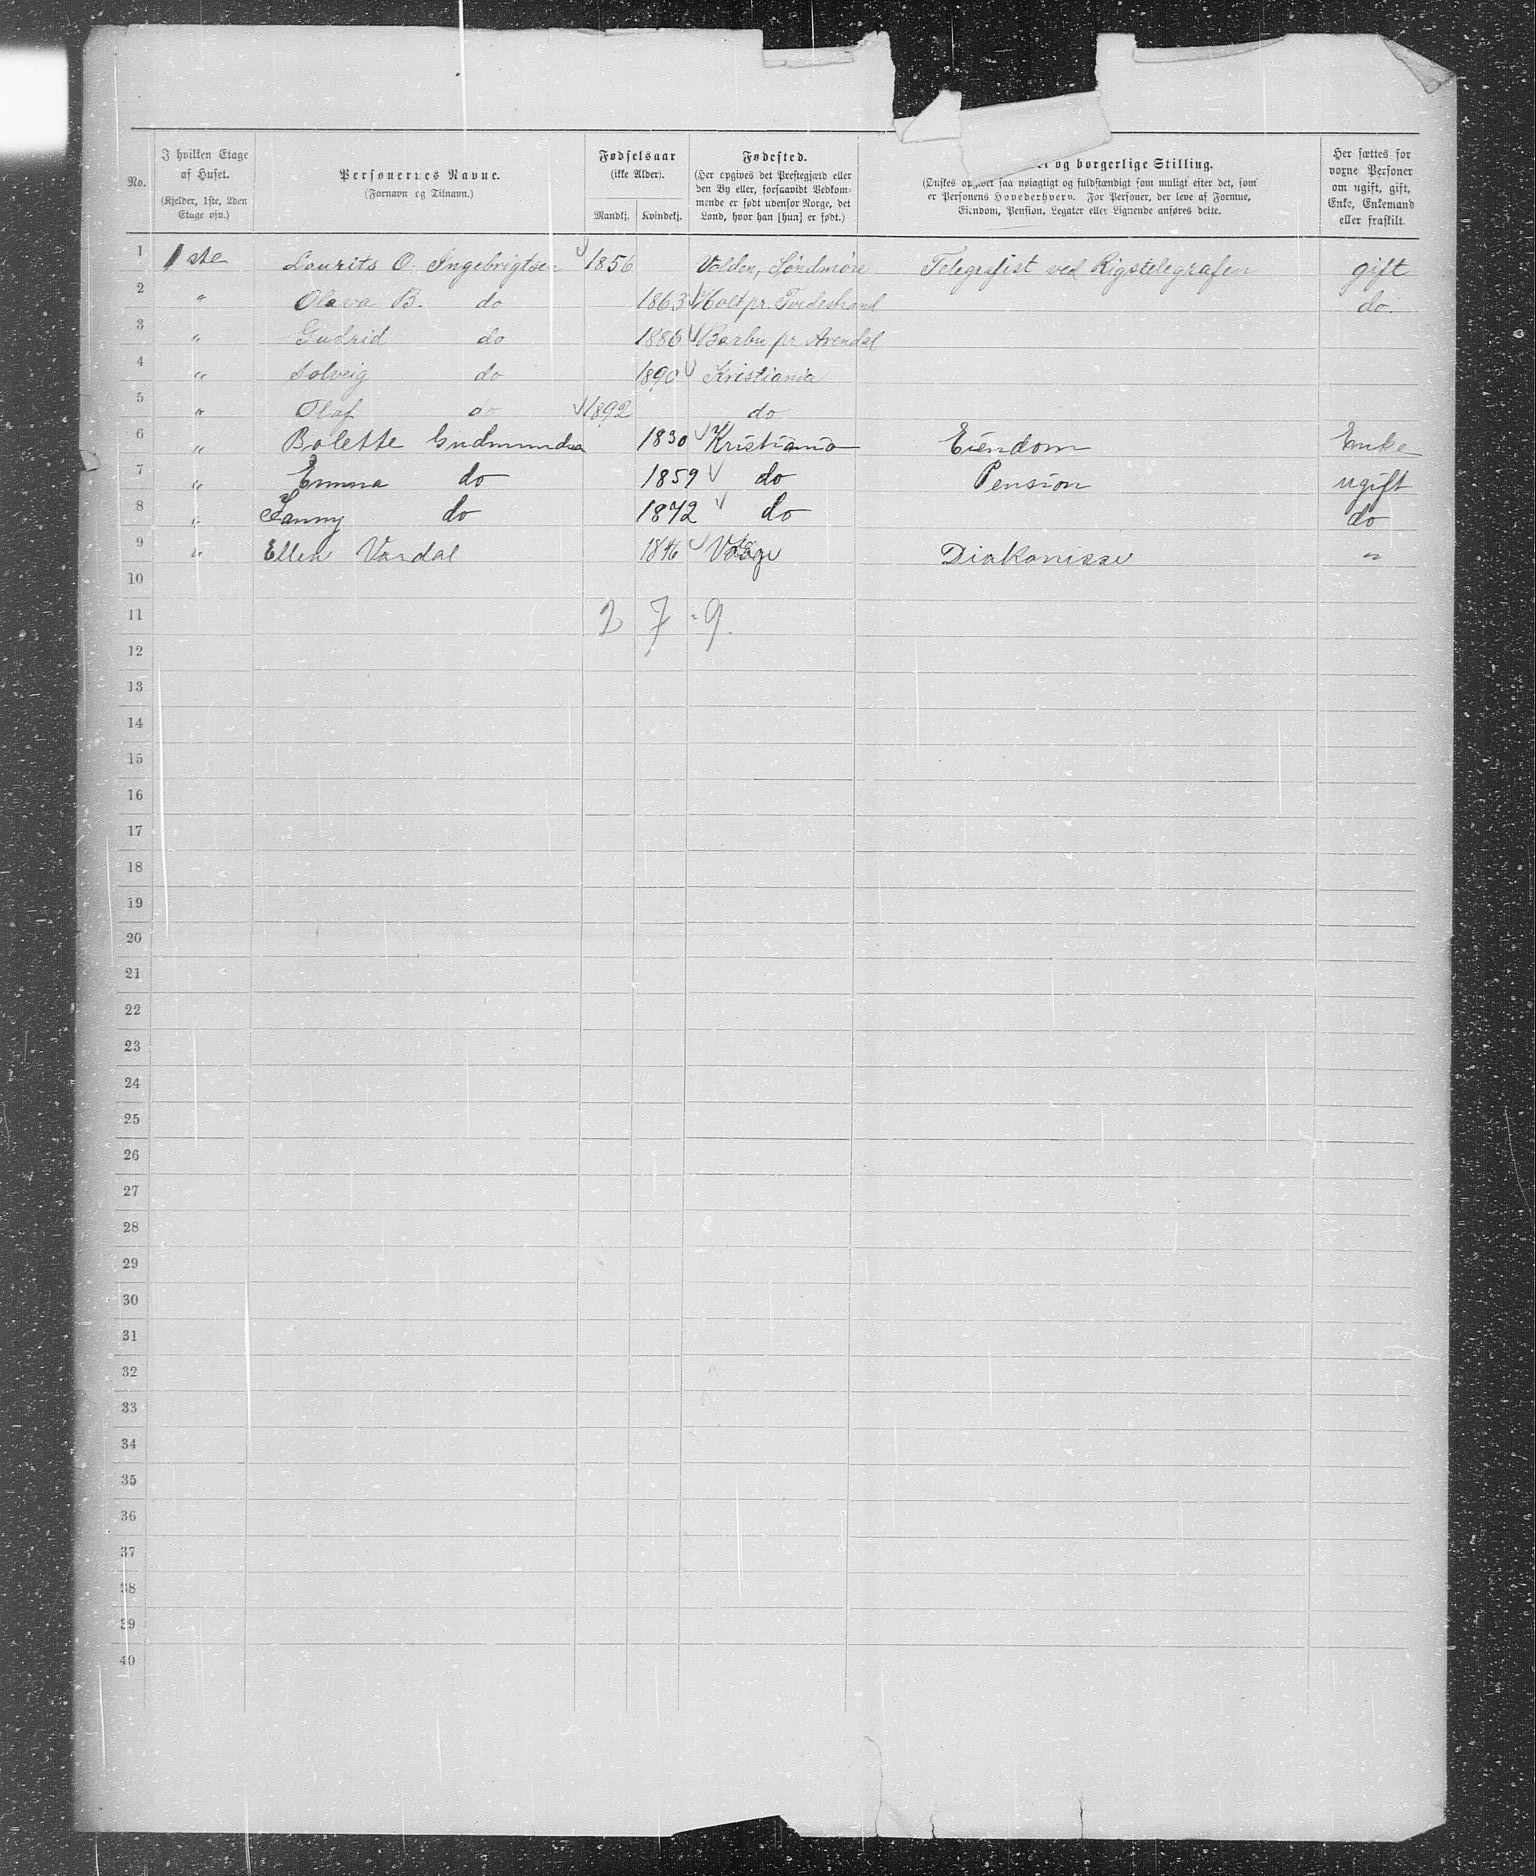 No.
I hvilken Etage af Huset.
(Kjelder, 1ste, 2den Etage osv.)
Personernes Navne.
(Fornavn og Tilnavn.)
Fødselsaar
(ikke Alder).
Mandkj. Kvindekj.
Fødested.
(Her opgives det Prestegjæld eller
den By eller, forsaavidt Vedkom-
mende er født udenfor Norge, det
Land, hvor han [hun] er født.)
og borgerlige Stilling.
(Ønskes opgivet saa nøiagtigt og fuldstændigt som muligt efter det, som
er Personens Hovederhverv. For Personer, der leve af Formue,
Eiendom, Pension, Legater eller Lignende anføres dette.
Her sættes for
voxne Personer
om ugift, gift,
Enke, Enkemand
eller fraskilt.
1 1ste Laurits O. Ingebrigtsen 1856 Volden, Søndmøre Telegrafist ved Rigstelegrafen gift
2 " Olava B. do 1863 Holt pr. Tvedestrand do.
3 " Gudrid do 1886 Barbu pr. Arendal
4 " Solveig do 1890 Kristiania
5 " Olaf do 1892 do
6 " Bolette Gudmundsen 1830 Kristiania Eiendom Enke
7 " Emma do 1859 do Pension ugift
8 " Fanny do 1872 do do
9 " Ellen Vardal 1846 Diakonisse "
10
11 2 7 = 9.
12
13
14
15
16
17
18
19
20
21
22
23
24
25
26
27
28
29
30
31
32
33
34
35
36
37
38
39
40